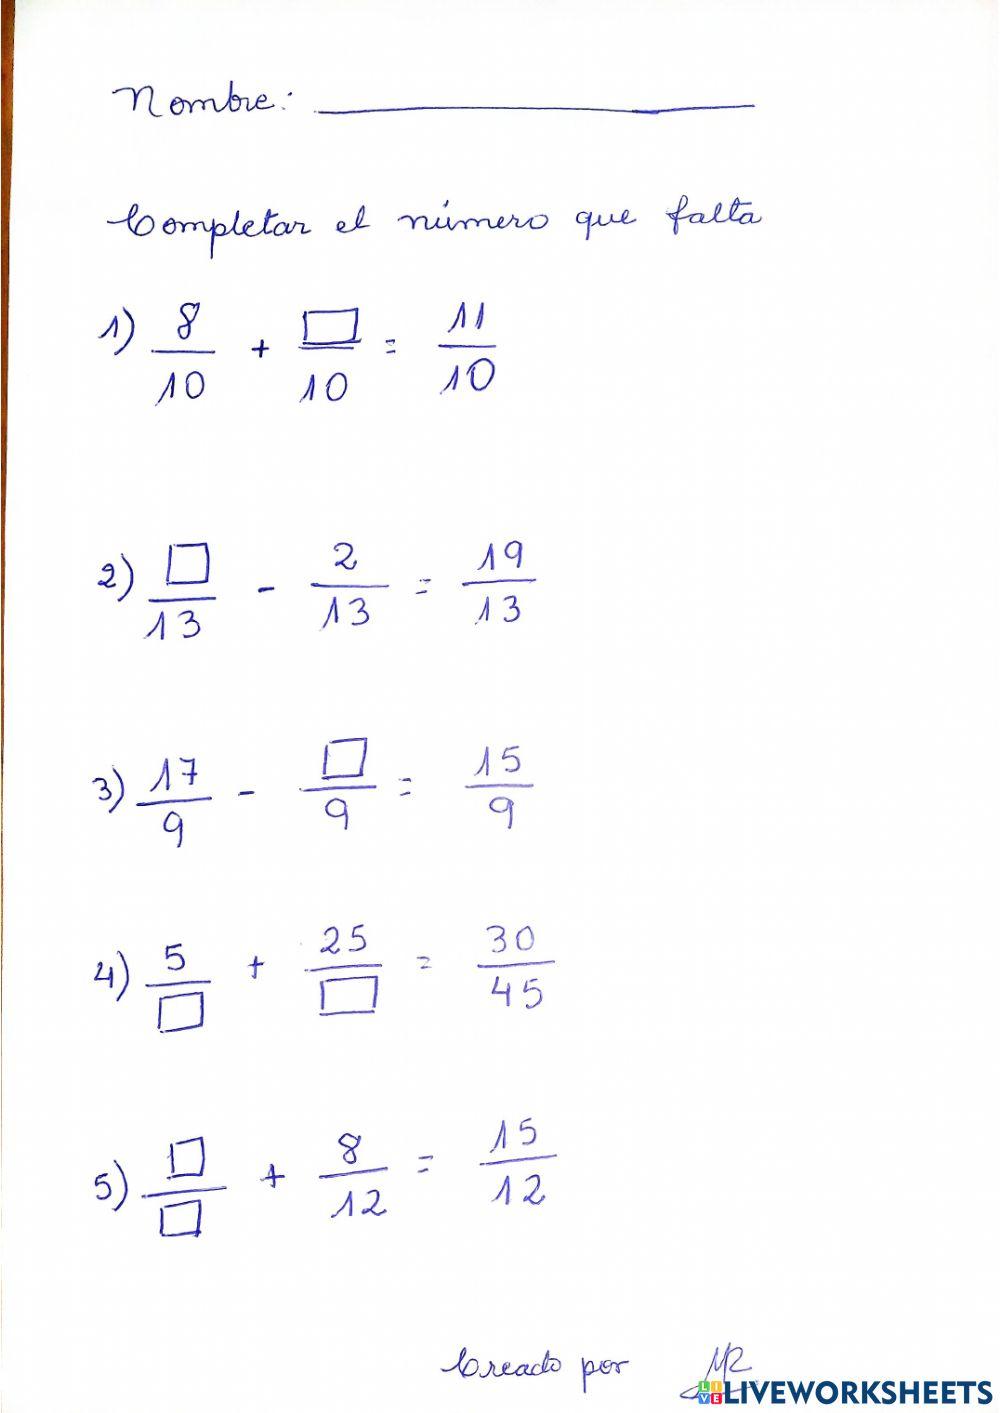 Nombre: ____________________
Completar el número que falta
1) 8/10 + □/10 = 11/10
2) □/13 - 2/13 = 19/13
3) 17/9 - □/9 = 15/9
4) 5/□ + 25/□ = 30/45
5) □/□ + 8/12 = 15/12
Creado por MR
LIVEWORKSHEETS